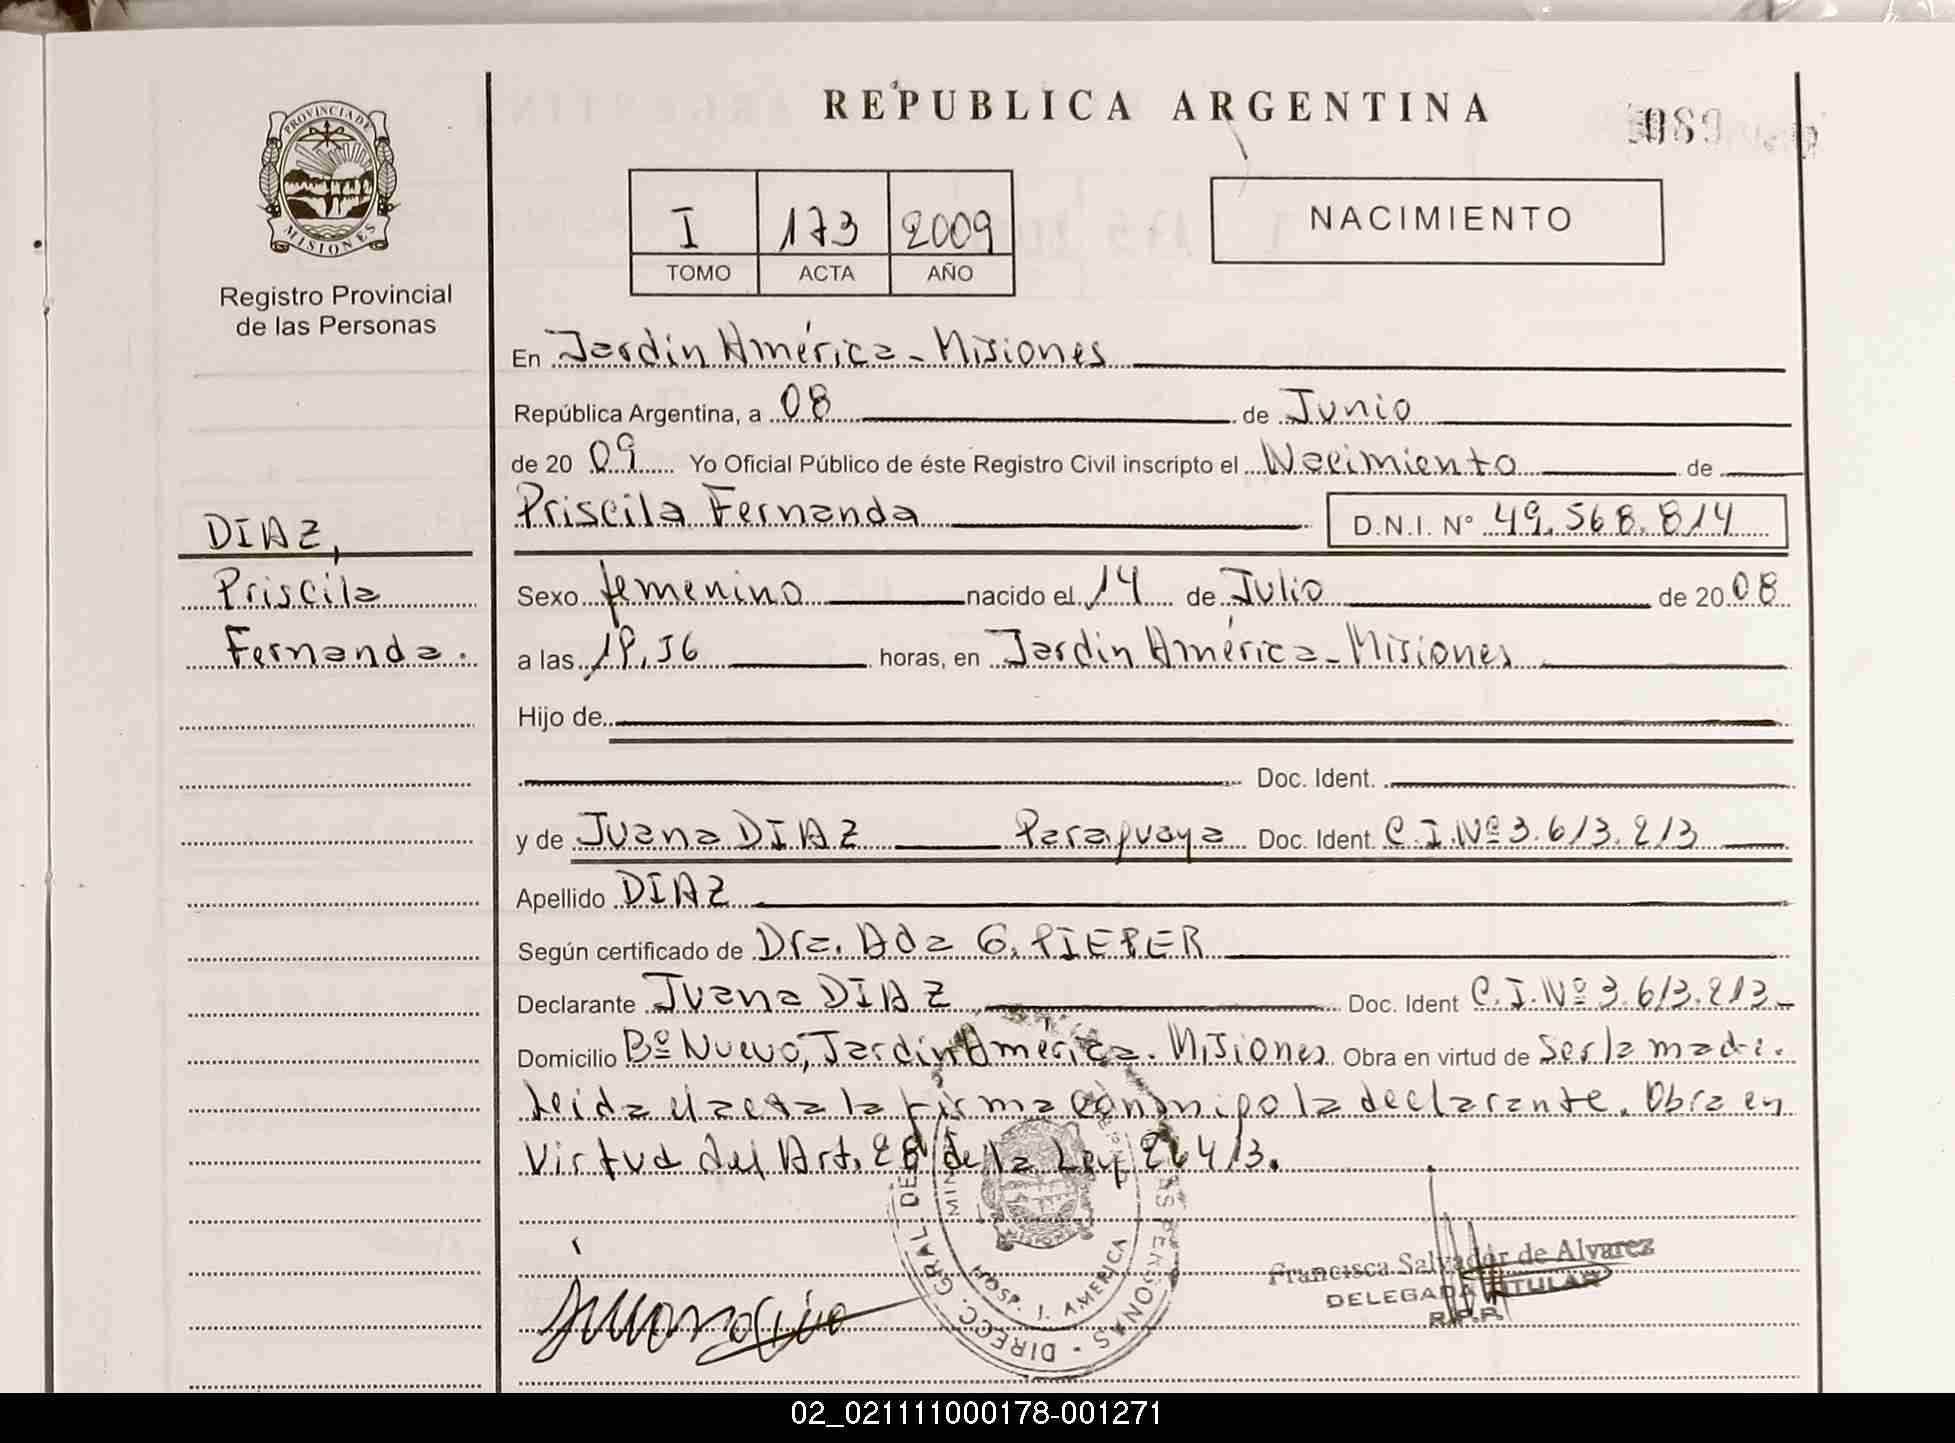 REPUBLICA ARGENTINA
PROVINCIA DE
MISIONES
Registro Provincial
de las Personas
I 173 2009
TOMO ACTA AÑO
NACIMIENTO
En Jardín América - Misiones
República Argentina, a 08 de Junio
de 20 09 Yo Oficial Público de éste Registro Civil inscripto el Nacimiento de
Priscila Fernanda D.N.I. N° 49.568.814
DIAZ,
Priscila
Fernanda.
Sexo femenino nacido el 14 de Julio de 20 08
a las horas, en Jardín América - Misiones
Hijo de
Doc. Ident.
y de Juana DIAZ Paraguaya Doc. Ident. C.I.Nº 3.613.213
Apellido DIAZ
Según certificado de Dra. Ada G. PIEPER
Declarante Juana DIAZ Doc. Ident C.I.Nº 3.613.213
Domicilio Bº Nuevo, Jardín América. Misiones Obra en virtud de Ser la madre.
Leída el acta la firma conmigo la declarante. Obra en
Virtud del Art. 28 de la Ley 26413.
DIRECC. GRAL. DE LAS PERSONAS
HOSP. J. AMERICA
Francisca Salvador de Alvarez
DELEGADA TITULAR
R.P.P.
02_021111000178-001271